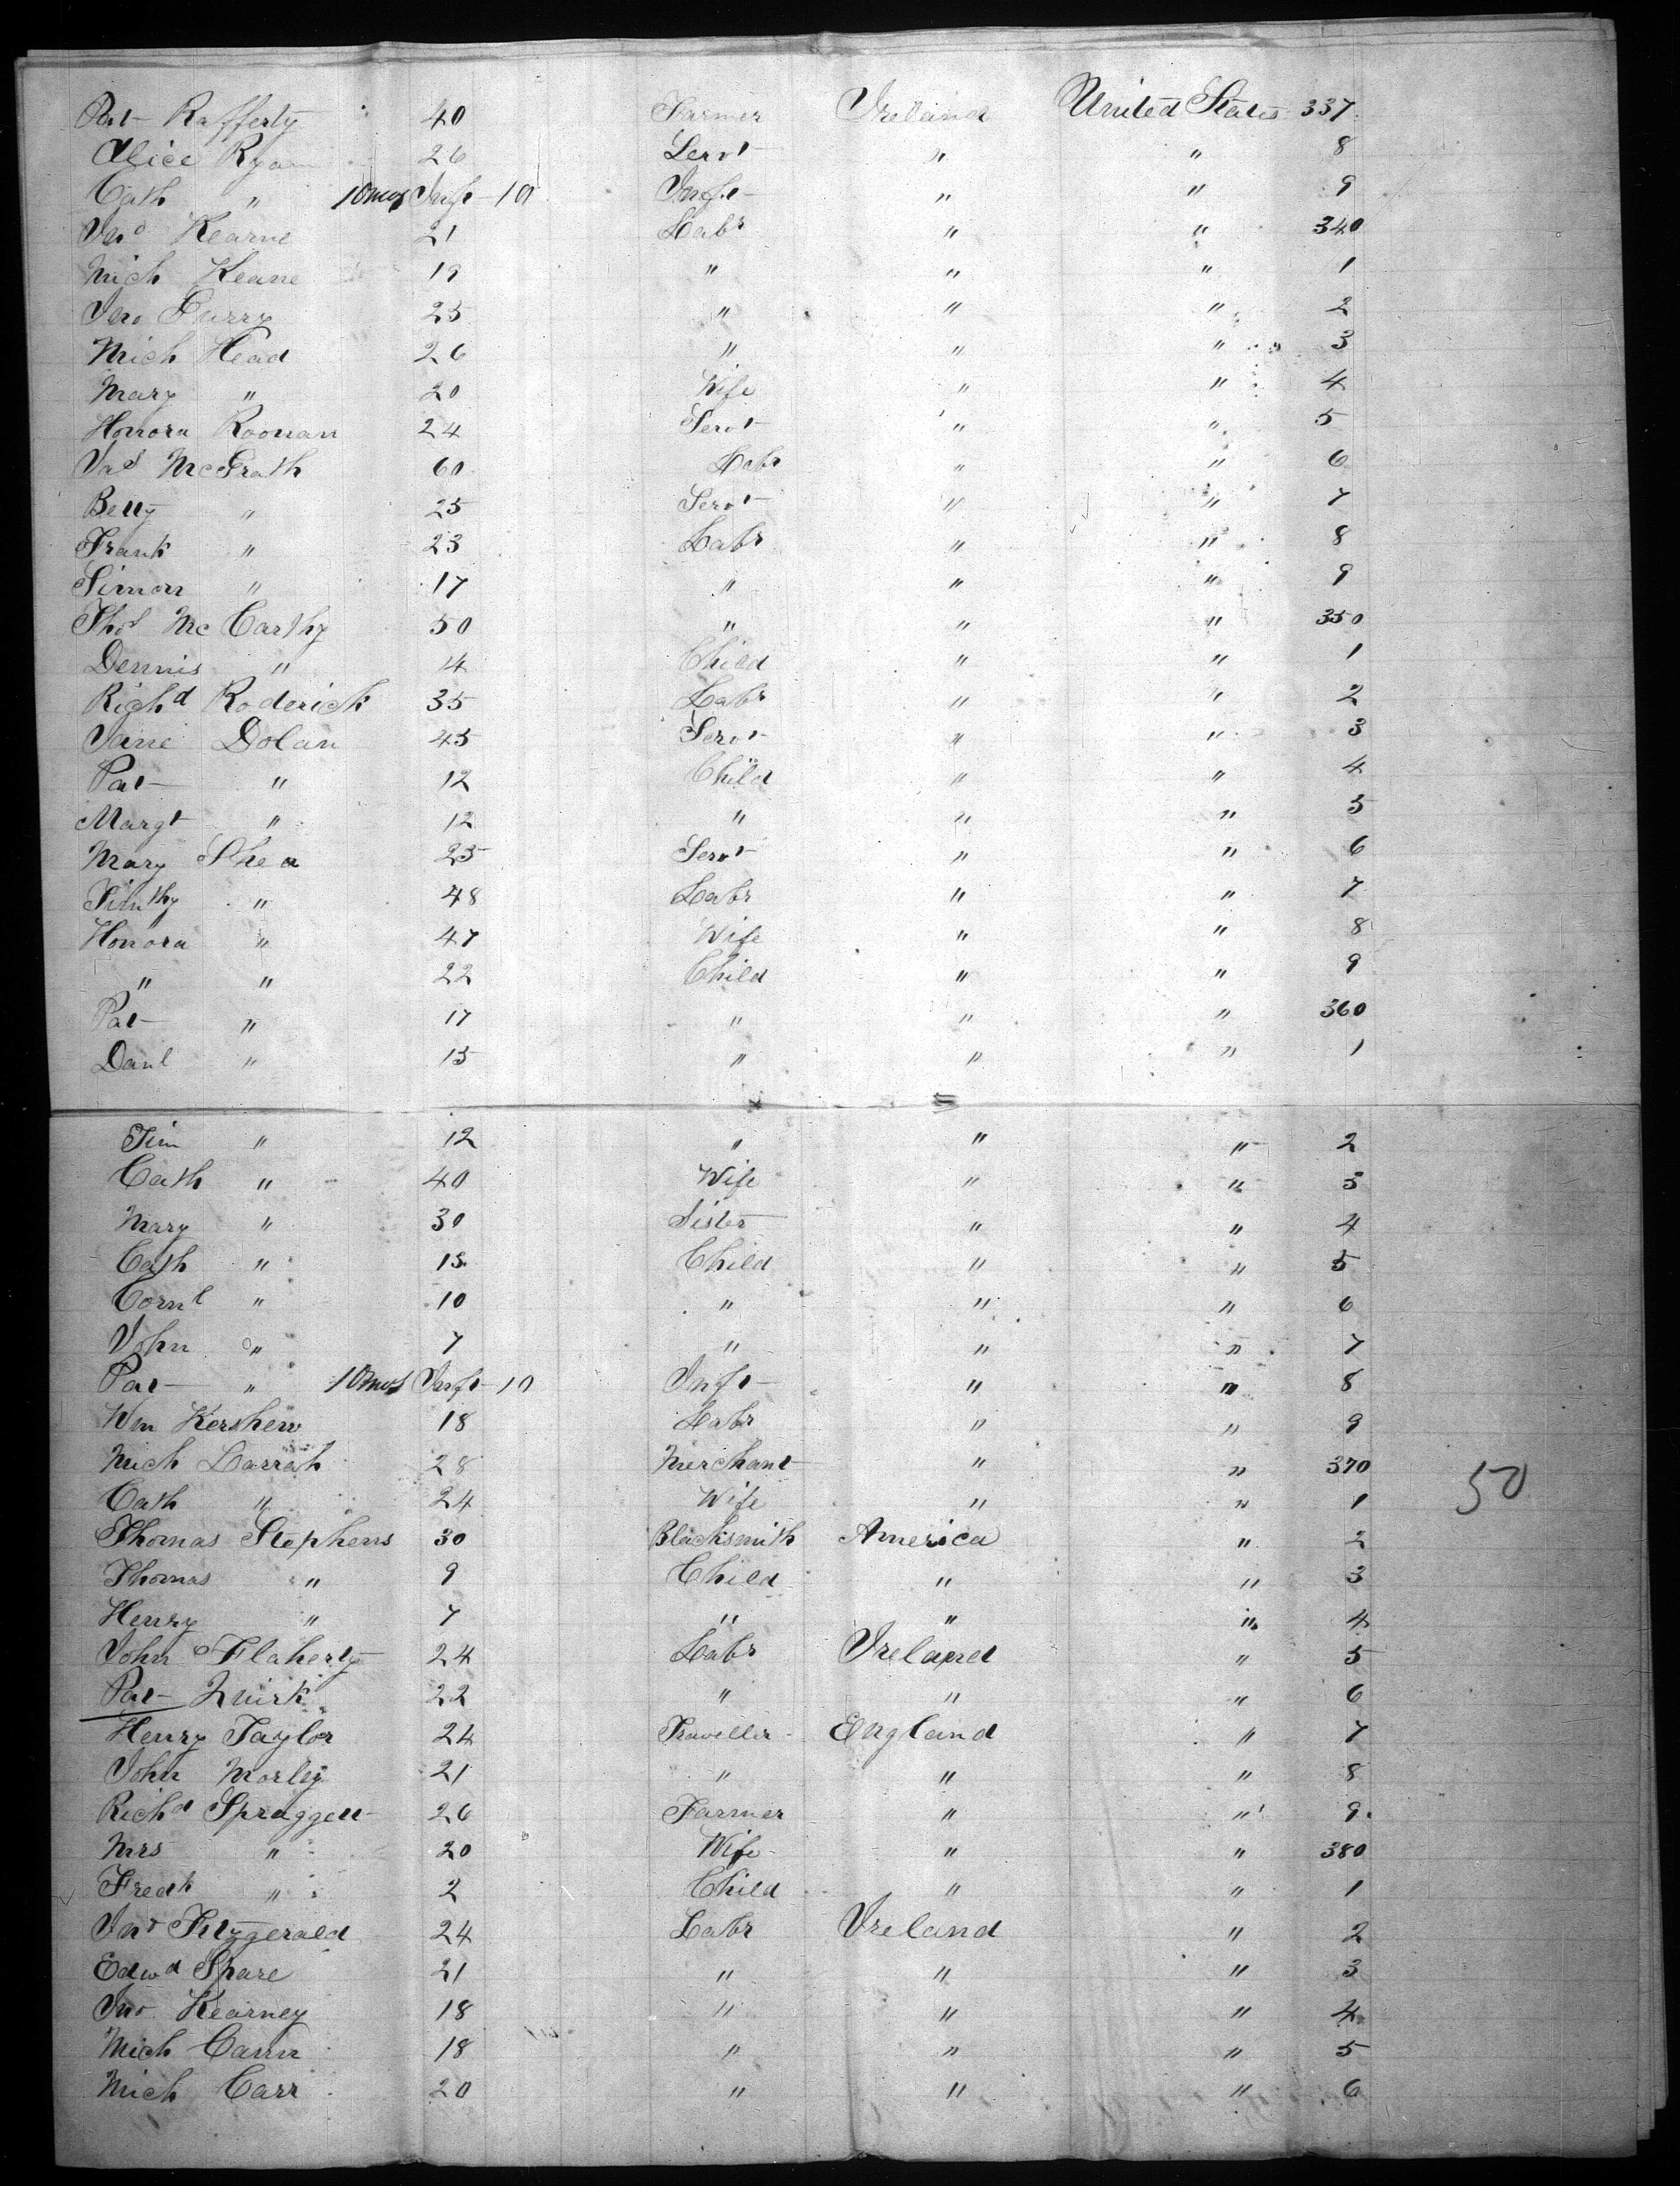 Pat Rafferty 40 Farmer Ireland United States 337
Alice Ryan 26 Servt " " 8
Cath " 10 mos Inft 10 Inft " " 9
Jno Kearne 21 Labr " " 340
Mich Keane 19 " " " 1
Jno Curry 25 " " " 2
Mich Head 26 " " " 3
Mary " 20 Wife " " 4
Honora Roonan 24 Servt " " 5
Jas McGrath 60 Labr " " 6
Betty " 25 Servt " " 7
Frank " 23 Labr " " 8
Simon " 17 " " " 9
Thos McCarthy 50 " " " 350
Dennis " 14 Child " " 1
Richd Roderick 35 Labr " " 2
Jane Dolan 45 Servt " " 3
Pat " 12 Child " " 4
Margt " 12 " " " 5
Mary Shea 25 Servt " " 6
Timthy " 48 Labr " " 7
Honora " 47 Wife " " 8
" " 22 Child " " 9
Pat " 17 " " " 360
Danl " 15 " " " 1
Tim " 12 " " " 2
Cath " 40 Wife " " 3
Mary " 30 Sister " " 4
Cath " 15 Child " " 5
Cornl " 10 " " " 6
John " 7 " " " 7
Pat " 10 mos Inft 10 Inft " " 8
Wm Kershew 18 Labr " " 9
Mich Darrah 28 Merchant " " 370
50
Cath " 24 Wife " " 1
Thomas Stephens 30 Blacksmith America " 2
Thomas " 9 Child " " 3
Henry " 7 " " " 4
John Flaherty 24 Labr Ireland " 5
Pat Quirk 22 " " " 6
Henry Taylor 24 Traveller England " 7
John Morley 21 " " " 8
Richd Spraggett 26 Farmer " " 9
Mrs " 20 Wife " " 380
Fredk " 2 Child " " 1
Jno Fitzgerald 24 Labr Ireland " 2
Edwd Share 21 " " " 3
Jno Kearney 18 " " " 4
Mich Cann 18 " " " 5
Mich Carr 20 " " " 6